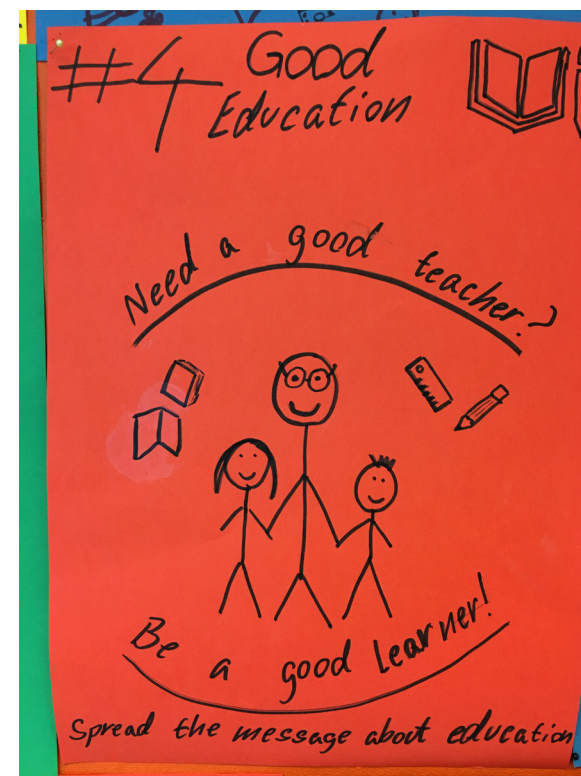 #4 Good
Education
Need a good teacher?
Be a good learner!
Spread the message about education